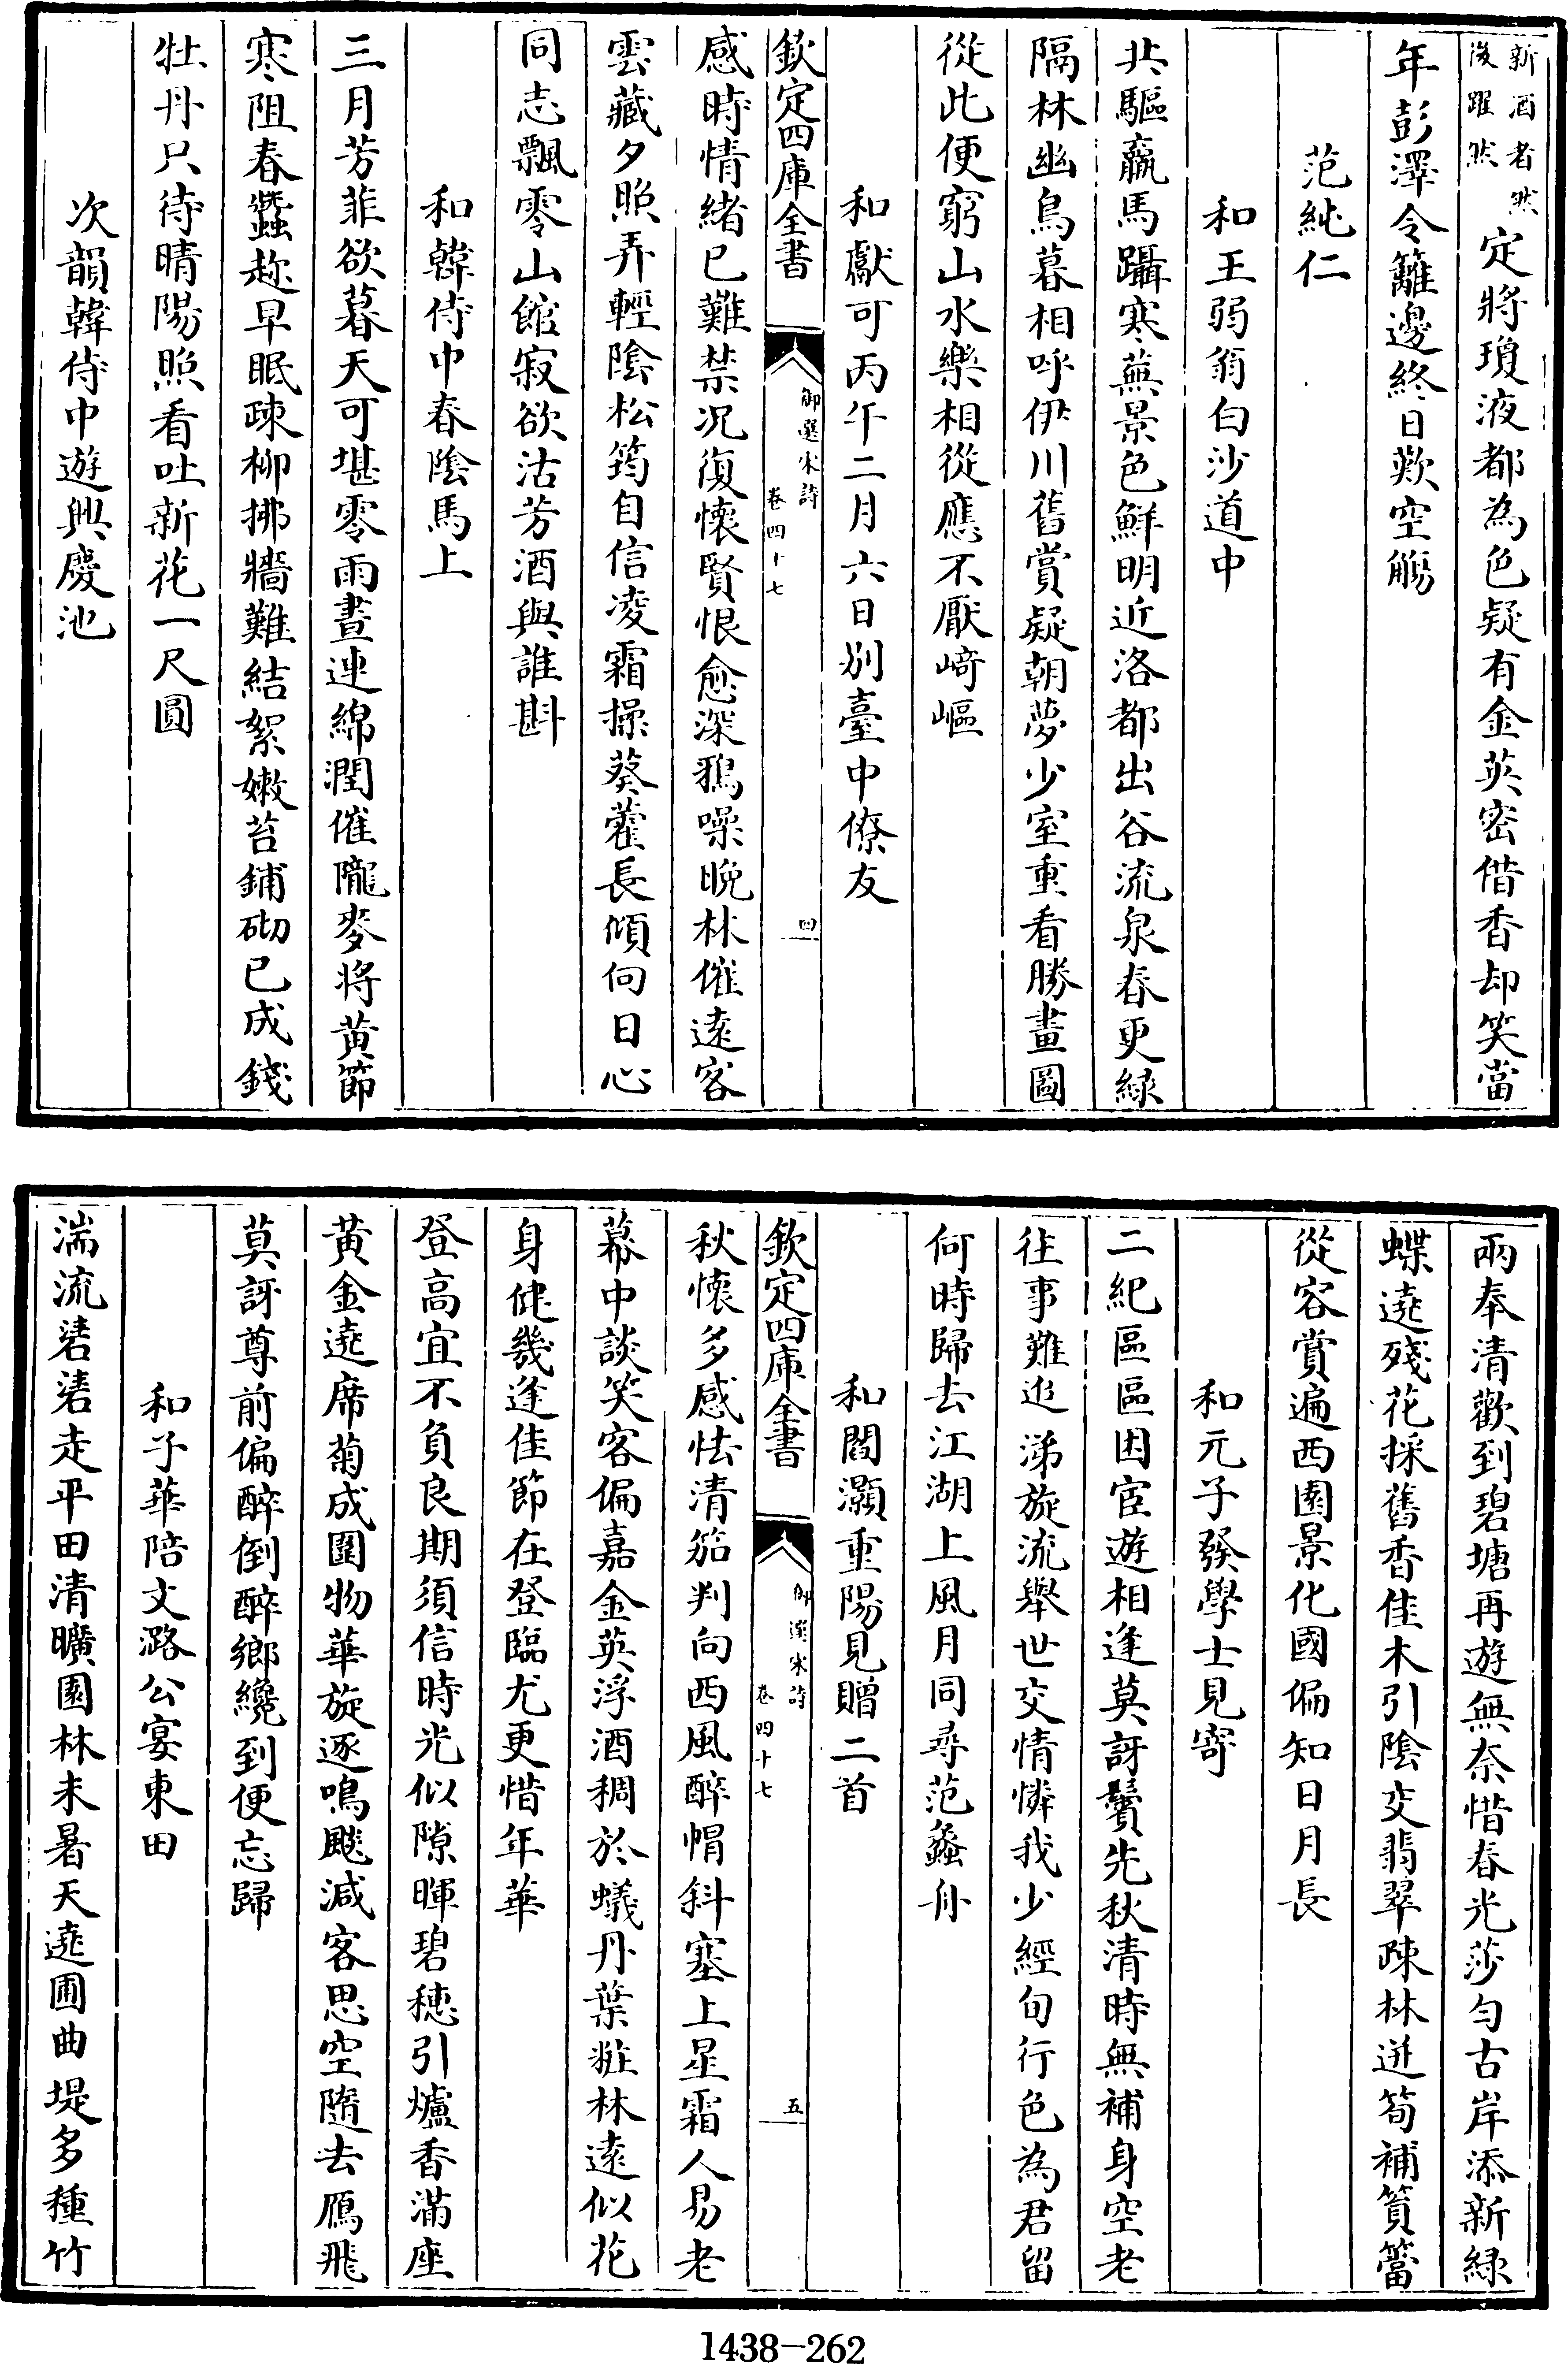 新酒者然
後躍然
定將瓊液都為色疑有金英密借香却笑當
年彭澤令籬邊終日歎空觴
范純仁
和王弱翁白沙道中
共驅羸馬躡寒蕪景色鮮明近洛都出谷流泉春更緑
隔林幽鳥暮相呼伊川舊賞疑朝夢少室重看勝畫圖
從此便窮山水樂相從應不厭﨑嶇
和獻可丙午二月六日别臺中僚友
欽定四庫全書
御選宋詩
卷四十七
四
感時情緒已難禁况復懐賢恨愈深鴉噪晩林催遠客
雲藏夕照弄輕陰松筠自信凌霜操葵藿長傾向日心
同志飄零山館寂欲沽芳酒與誰斟
和韓侍中春陰馬上
三月芳菲欲暮天可堪零雨晝連綿潤催隴麥將黄節
寒阻春蠶趂早眠疎栁拂牆難結絮嫩苔鋪砌已成錢
牡丹只待晴陽照看吐新花一尺圓
次韻韓侍中遊興慶池
兩奉清歡到碧塘再遊無奈惜春光莎勻古岸添新緑
蝶遶殘花採舊香佳木引陰交翡翠疎林迸筍補篔簹
從容賞遍西園景化國偏知日月長
和元子發學士見寄
二紀區區因宦遊相逢莫訝鬢先秋清時無補身空老
往事難追涕旋流舉世交情憐我少經旬行色為君留
何時歸去江湖上風月同尋范蠡舟
和閻灝重陽見贈二首
欽定四庫全書
御選宋詩
卷四十七
五
秋懐多感怯清笳判向西風醉帽斜塞上星霜人易老
幕中談笑客偏嘉金英浮酒稠於蟻丹葉粧林遠似花
身健幾逢佳節在登臨尤更惜年華
登高宜不負良期須信時光似隙暉碧穗引爐香滿座
黄金遶席菊成圍物華旋逐鳴飈減客思空隨去鴈飛
莫訝尊前偏醉倒醉鄉纔到便忘歸
和子華陪文潞公宴東田
湍流㵿㵿走平田清曠園林未暑天遶圃曲堤多種竹
1438-262